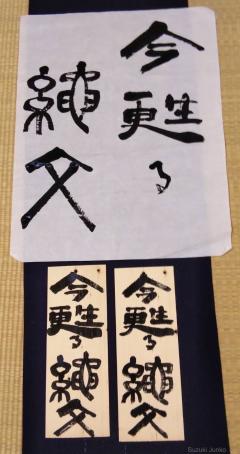 今甦る
縄文
今甦る縄文
今甦る縄文
Suzuki Junko